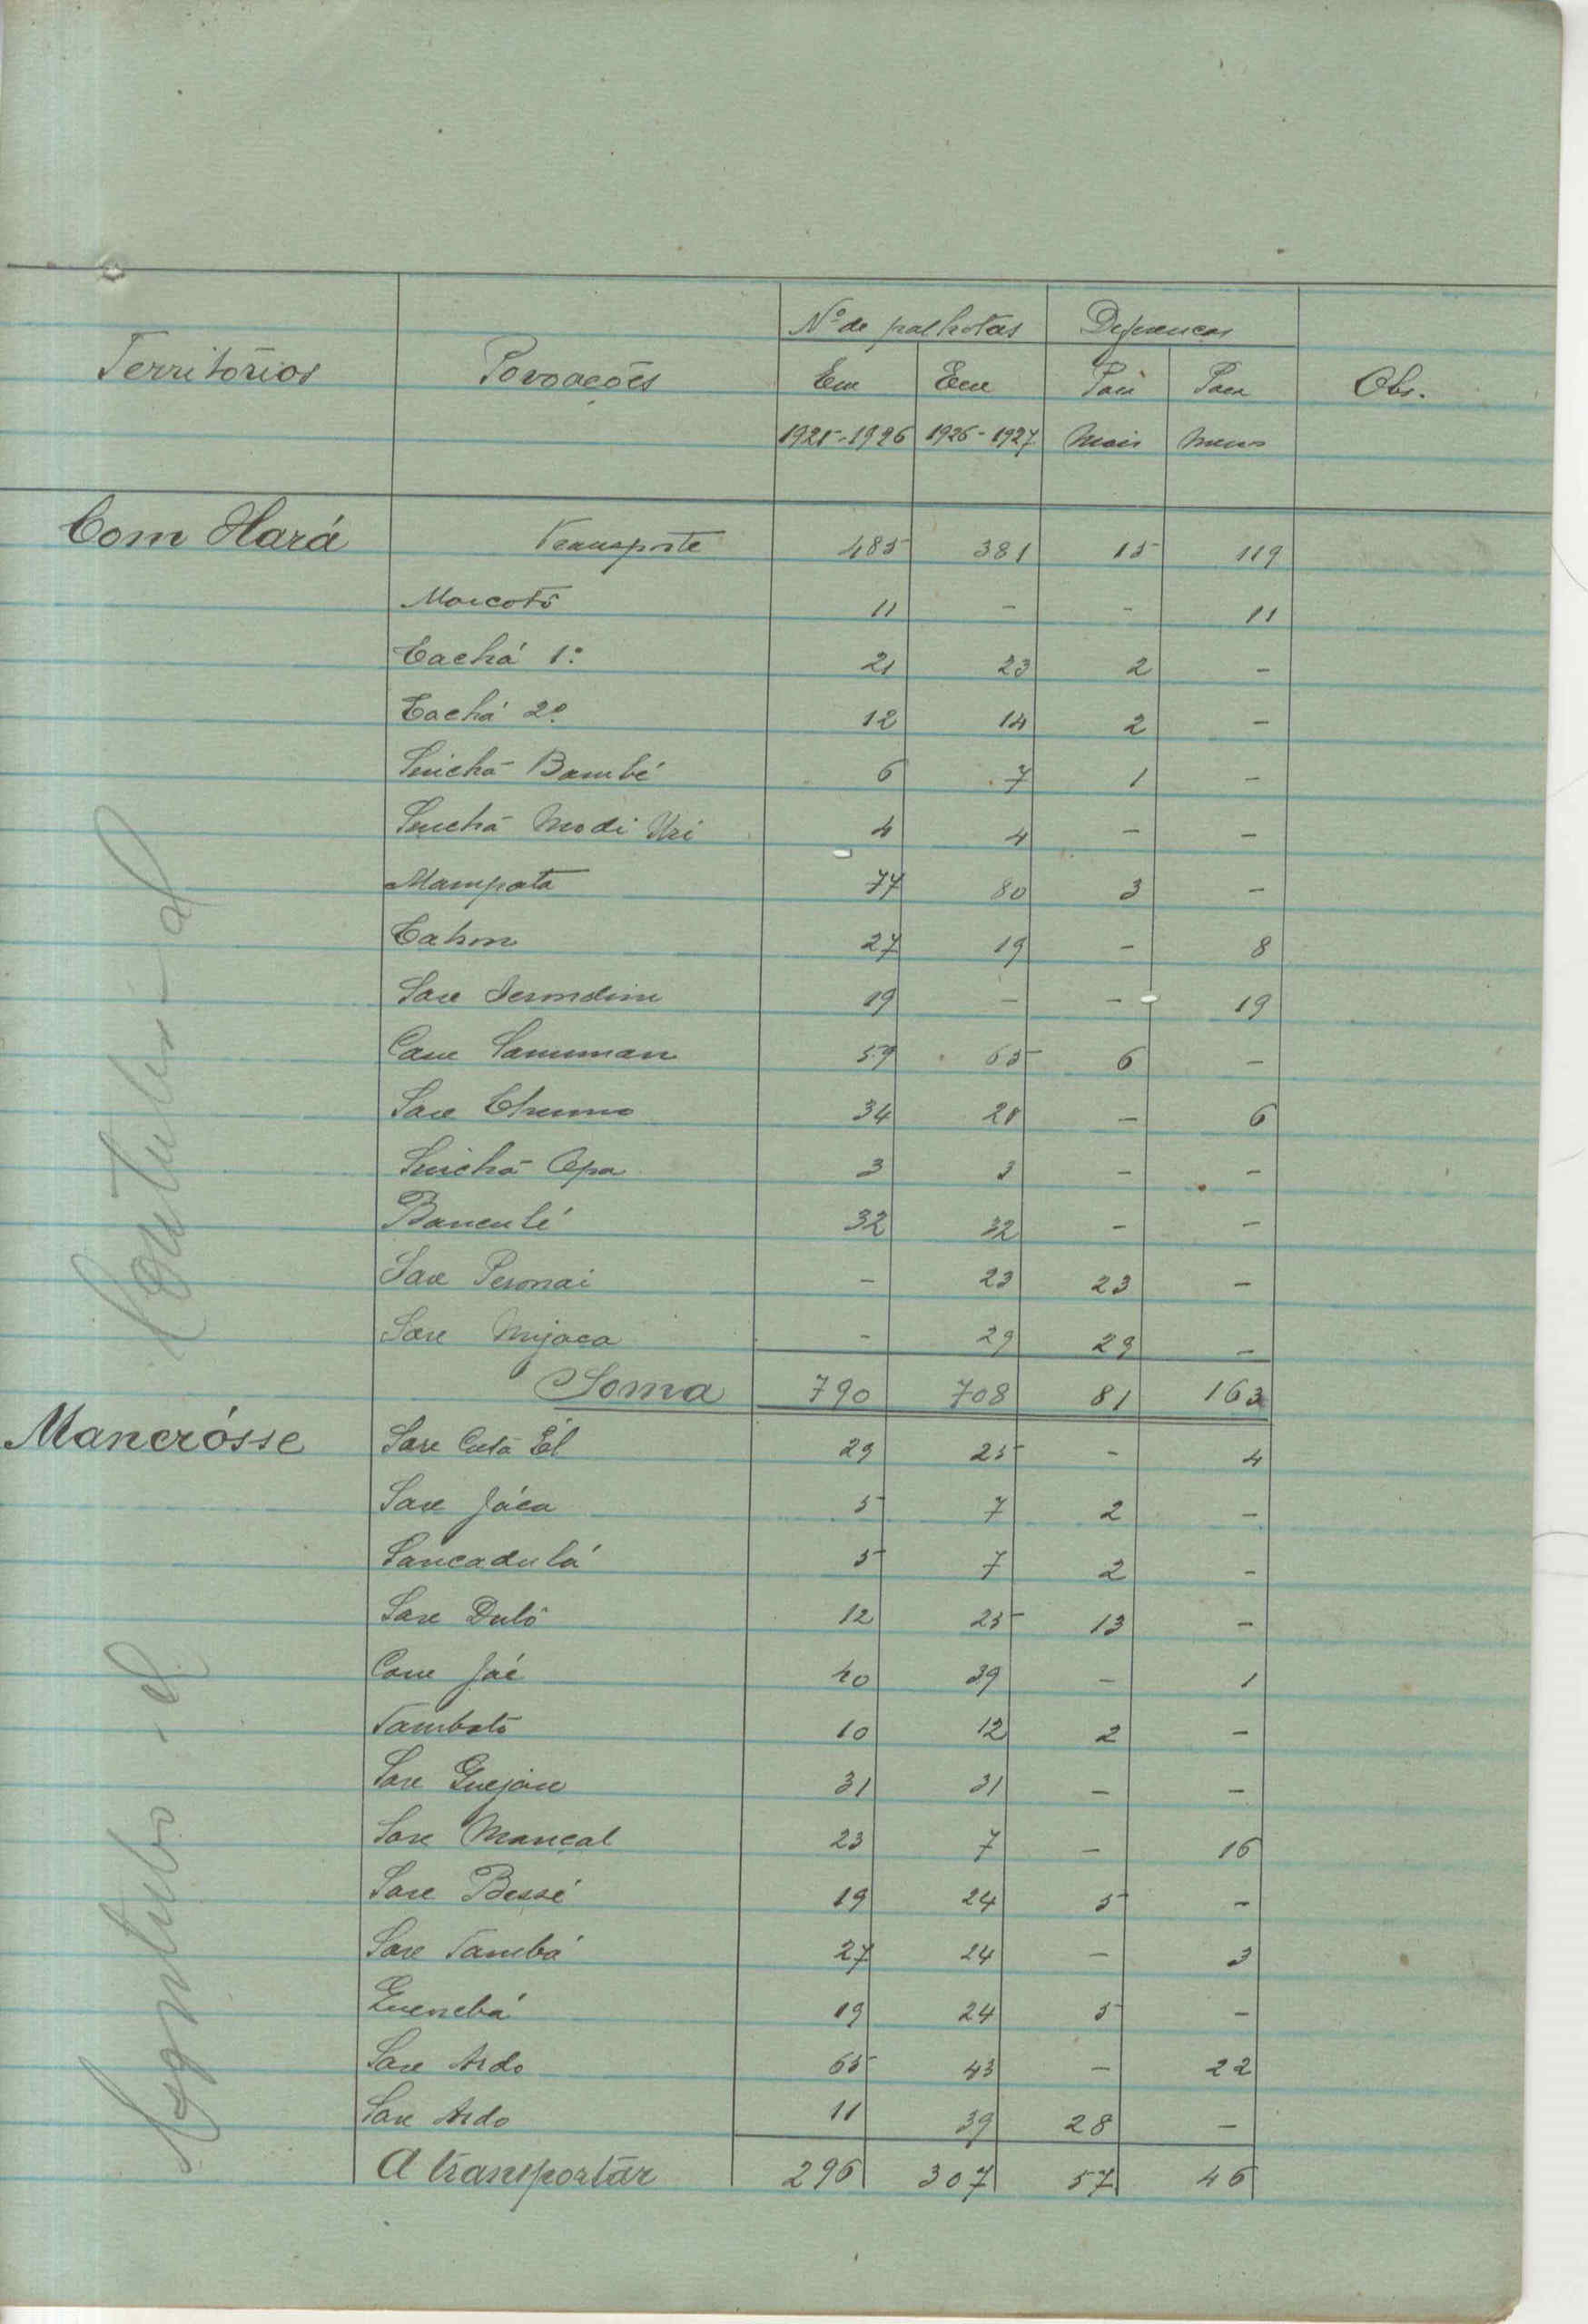 Nº de palhotas Diferenças
Territórios Povoações Em Em Para Para Obs.
1925-1926 1926-1927 mais menos
Com Hará Transporte 485 381 15 119
Marcotô 11 - - 11
Cachá 1º 21 23 2 -
Cachá 2º 12 14 2 -
Sinchã Bambé 6 7 1 -
Sinchã Modi Uri 4 4 - -
Mampata 77 80 3 -
27 19 - 8
Sare 19 - - 19
Cam Samuman 59 65 6 -
Sare 34 28 - 6
Sinchã Opa 3 3 - -
Banculé 32 32 - -
Sare Peronai - 23 23 -
Sare - 29 29 -
Soma 790 708 81 163
Mancrósse Sare Cutã Él 29 25 - 4
Sare Jáca 5 7 2 -
Sancadulá 5 7 2 -
Sare Dulô 12 25 13 -
Cam Jaé 40 39 - 1
Tambatô 10 12 2 -
Sare 31 31 - -
Sare Mançal 23 7 - 16
Sare Bessé 19 24 5 -
Sare Tambá 27 24 - 3
19 24 5 -
Sare Ardo 65 43 - 22
Sare Ardo 11 39 28 -
A transportár 296 307 57 46